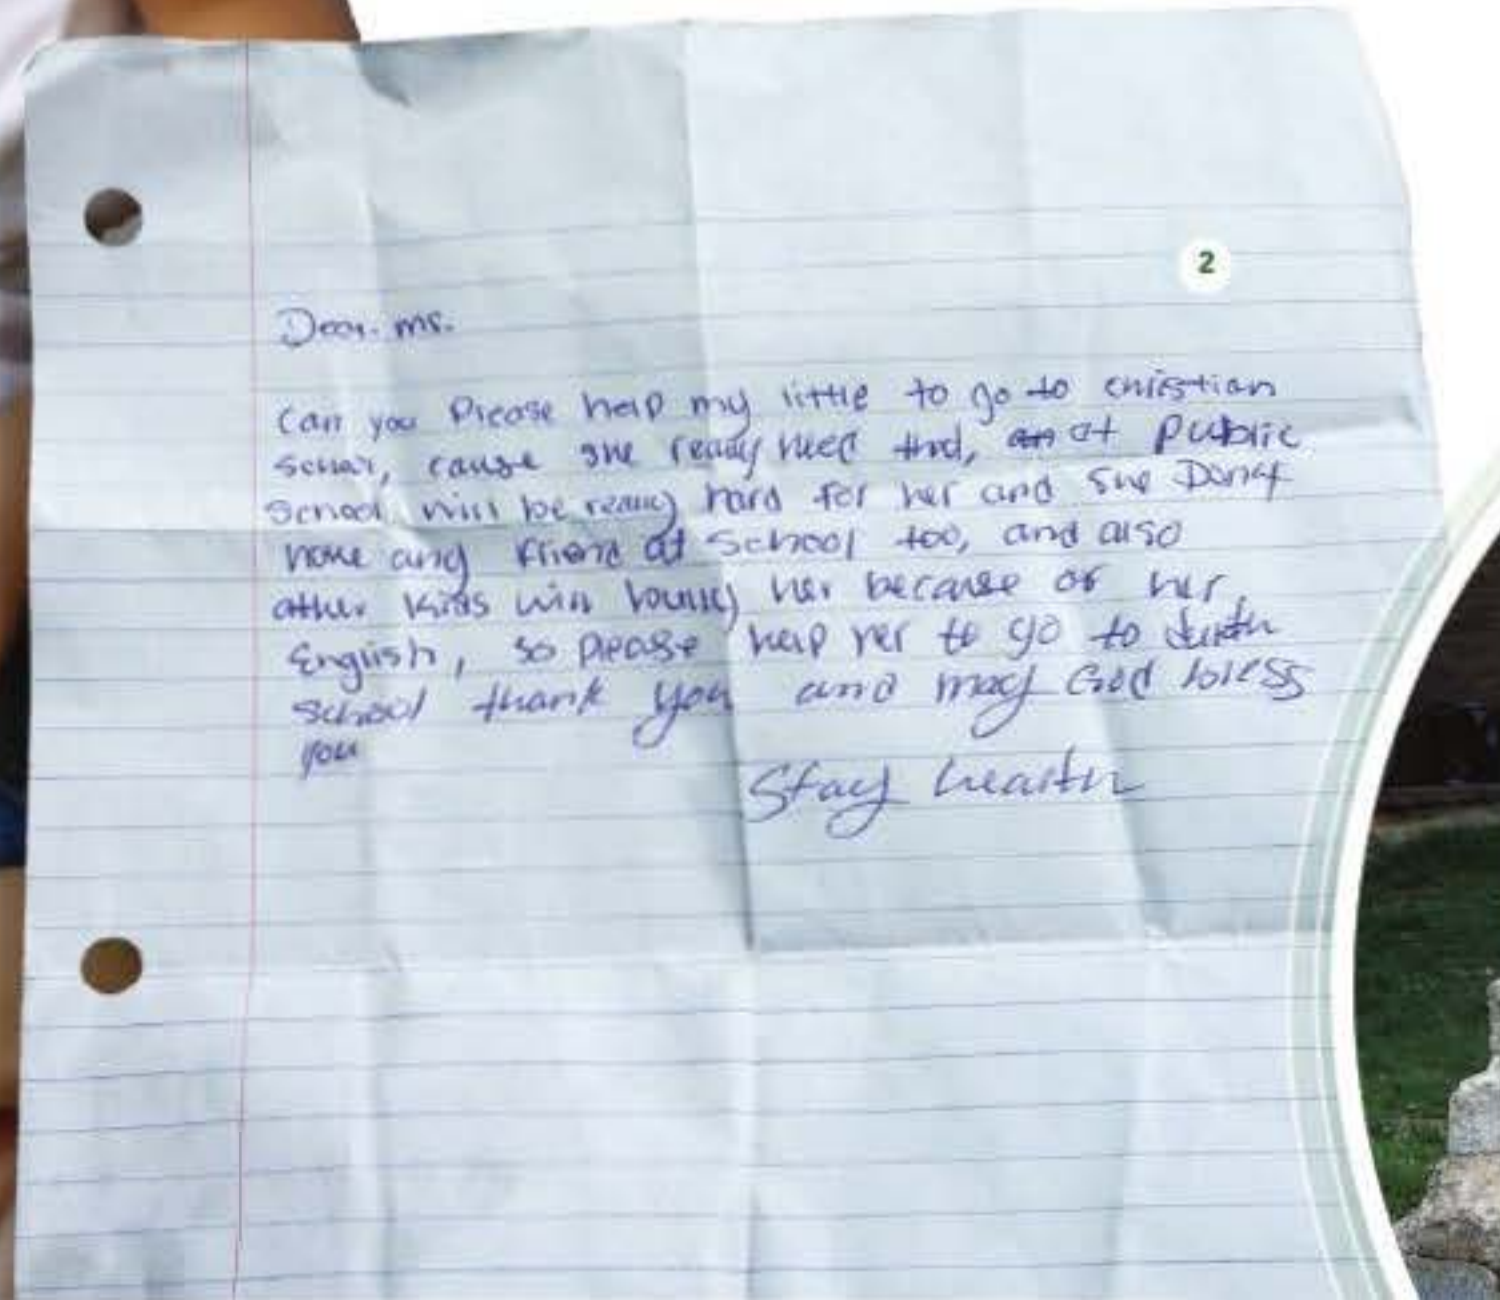 2
Dear. ms.
Can you Please help my little to go to christian
schar, cause she really need that, at Public
School will be really hard for her and she Donat
have any friend at School too, and also
other kids will bully her because of her
English, so please help her to go to
school thank you and may God bless
you
Stay health